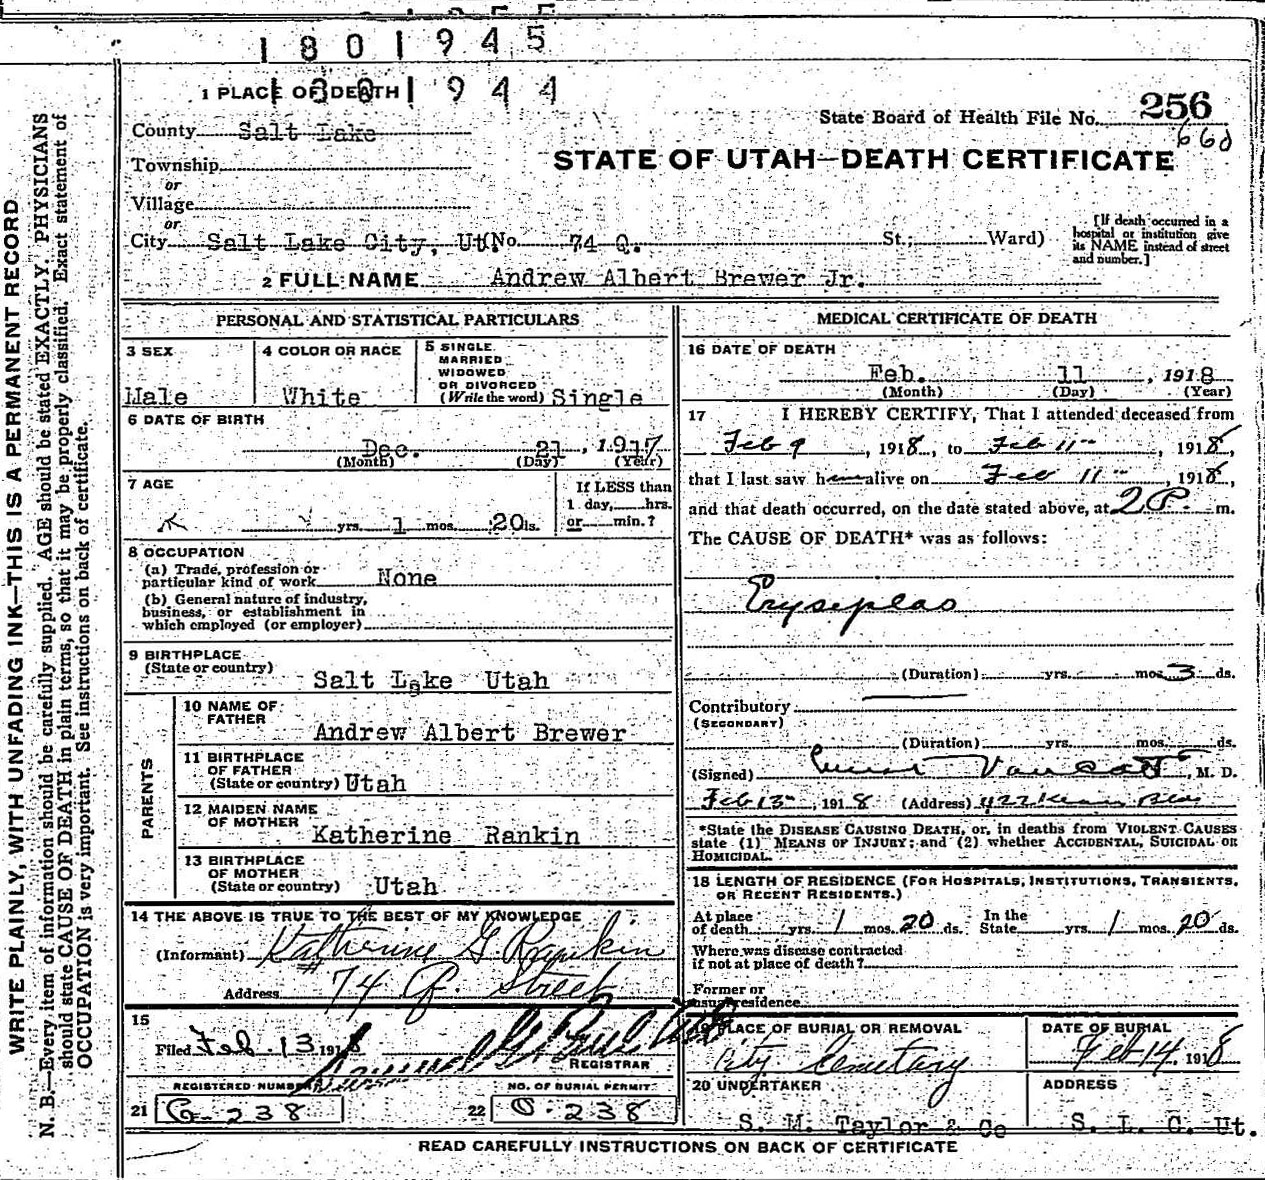 1801945
1301944
1 PLACE OF DEATH
State Board of Health File No. 256
660
County Salt Lake
STATE OF UTAH—DEATH CERTIFICATE
Township
or
Village
or
City Salt Lake City, Ut (No. 74 Q. St.; Ward)
[If death occurred in a
hospital or institution give
its NAME instead of street
and number.]
2 FULL NAME Andrew Albert Brewer Jr.
PERSONAL AND STATISTICAL PARTICULARS
3 SEX
Male
4 COLOR OR RACE
White
5 SINGLE
MARRIED
WIDOWED
OR DIVORCED
(Write the word) Single
6 DATE OF BIRTH
Dec. 21, 1917
(Month) (Day) (Year)
7 AGE
yrs. 1 mos. 20 ds.
If LESS than
1 day, hrs.
or min.?
8 OCCUPATION
(a) Trade, profession or
particular kind of work None
(b) General nature of industry,
business, or establishment in
which employed (or employer)
9 BIRTHPLACE
(State or country)
Salt Lake Utah
PARENTS
10 NAME OF
FATHER
Andrew Albert Brewer
11 BIRTHPLACE
OF FATHER
(State or country) Utah
12 MAIDEN NAME
OF MOTHER
Katherine Rankin
13 BIRTHPLACE
OF MOTHER
(State or country) Utah
14 THE ABOVE IS TRUE TO THE BEST OF MY KNOWLEDGE
(Informant) Katherine G. Rankin
Address #74 Q. Street
15
Filed Feb. 13 1918
REGISTRAR
REGISTERED NUMBER
21 G-238
NO. OF BURIAL PERMIT
22 O-238
MEDICAL CERTIFICATE OF DEATH
16 DATE OF DEATH
Feb. 11, 1918
(Month) (Day) (Year)
17 I HEREBY CERTIFY, That I attended deceased from
Feb 9, 1918, to Feb 11, 1918,
that I last saw h alive on Feb 11, 1918,
and that death occurred, on the date stated above, at 2 P. m.
The CAUSE OF DEATH* was as follows:
Eryseplas
(Duration) yrs. mos. 3 ds.
Contributory
(SECONDARY)
(Duration) yrs. mos. ds.
(Signed) , M. D.
Feb 13, 1918 (Address)
*State the DISEASE CAUSING DEATH, or, in deaths from VIOLENT CAUSES
state (1) MEANS OF INJURY; and (2) whether ACCIDENTAL, SUICIDAL OR
HOMICIDAL.
18 LENGTH OF RESIDENCE (FOR HOSPITALS, INSTITUTIONS, TRANSIENTS,
OR RECENT RESIDENTS.)
At place
of death yrs. 1 mos. 20 ds.
In the
State yrs. 1 mos. 20 ds.
Where was disease contracted
if not at place of death?
Former or
usual residence
19 PLACE OF BURIAL OR REMOVAL
City Cemetery
DATE OF BURIAL
Feb 14. 1918
20 UNDERTAKER
S. M. Taylor & Co
ADDRESS
S. L. C. Ut.
READ CAREFULLY INSTRUCTIONS ON BACK OF CERTIFICATE
WRITE PLAINLY, WITH UNFADING INK—THIS IS A PERMANENT RECORD
N. B.—Every item of information should be carefully supplied. AGE should be stated EXACTLY. PHYSICIANS
should state CAUSE OF DEATH in plain terms, so that it may be properly classified. Exact statement of
OCCUPATION is very important. See instructions on back of certificate.